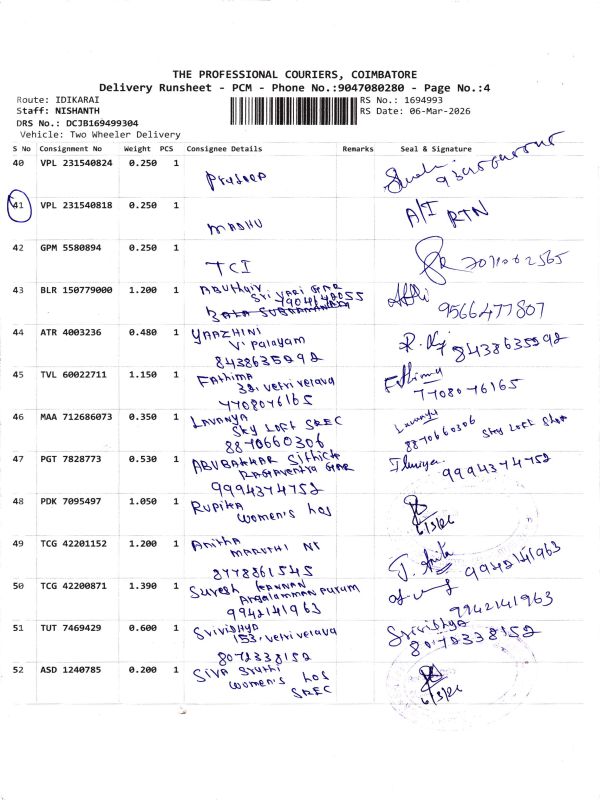 THE PROFESSIONAL COURIERS, COIMBATORE
Delivery Runsheet - PCM - Phone No.:9047080280 - Page No.:4
Route: IDIKARAI
RS No.: 1694993
Staff: NISHANTH
RS Date: 06-Mar-2026
DRS No.: DCJB169499304
Vehicle: Two Wheeler Delivery
S No Consignment No Weight PCS Consignee Details Remarks Seal & Signature
40 VPL 231540824 0.250 1
Pradeep
41 VPL 231540818 0.250 1
MADHU
A/I RTN
42 GPM 5580894 0.250 1
TCI
43 BLR 150779000 1.200 1
SRI VARI GAR
7904148055
9566477807
44 ATR 4003236 0.480 1
YAAZHINI
V' Palayam
8438635992
8438635992
45 TVL 60022711 1.150 1
Fathima
38, Vetri Velava
7708076165
Fathima
7708076165
46 MAA 712686073 0.350 1
LAVANYA
Sky Loft SREC
8870660306
Lavanya
8870660306 Sky Loft
47 PGT 7828773 0.530 1
ABUBAKKAR Sithick
9994374752
9994374752
48 PDK 7095497 1.050 1
Rupika
Women's Hos
6/3/26
49 TCG 42201152 1.200 1
Anitha
MARUTHI
8778861545
J. Anita
9942141963
50 TCG 42200871 1.390 1
Suresh KANNAN
Angalamman Puram
9942141963
9942141963
51 TUT 7469429 0.600 1
Srividhya
153, Vetri Velava
8072338152
Srividhya
8072338152
52 ASD 1240785 0.200 1
SIVA Sruthi
Women's Hos
SREC
6/3/26